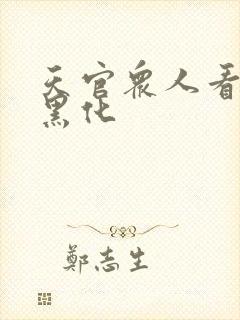 天官眾人看
黑化
鄭志生